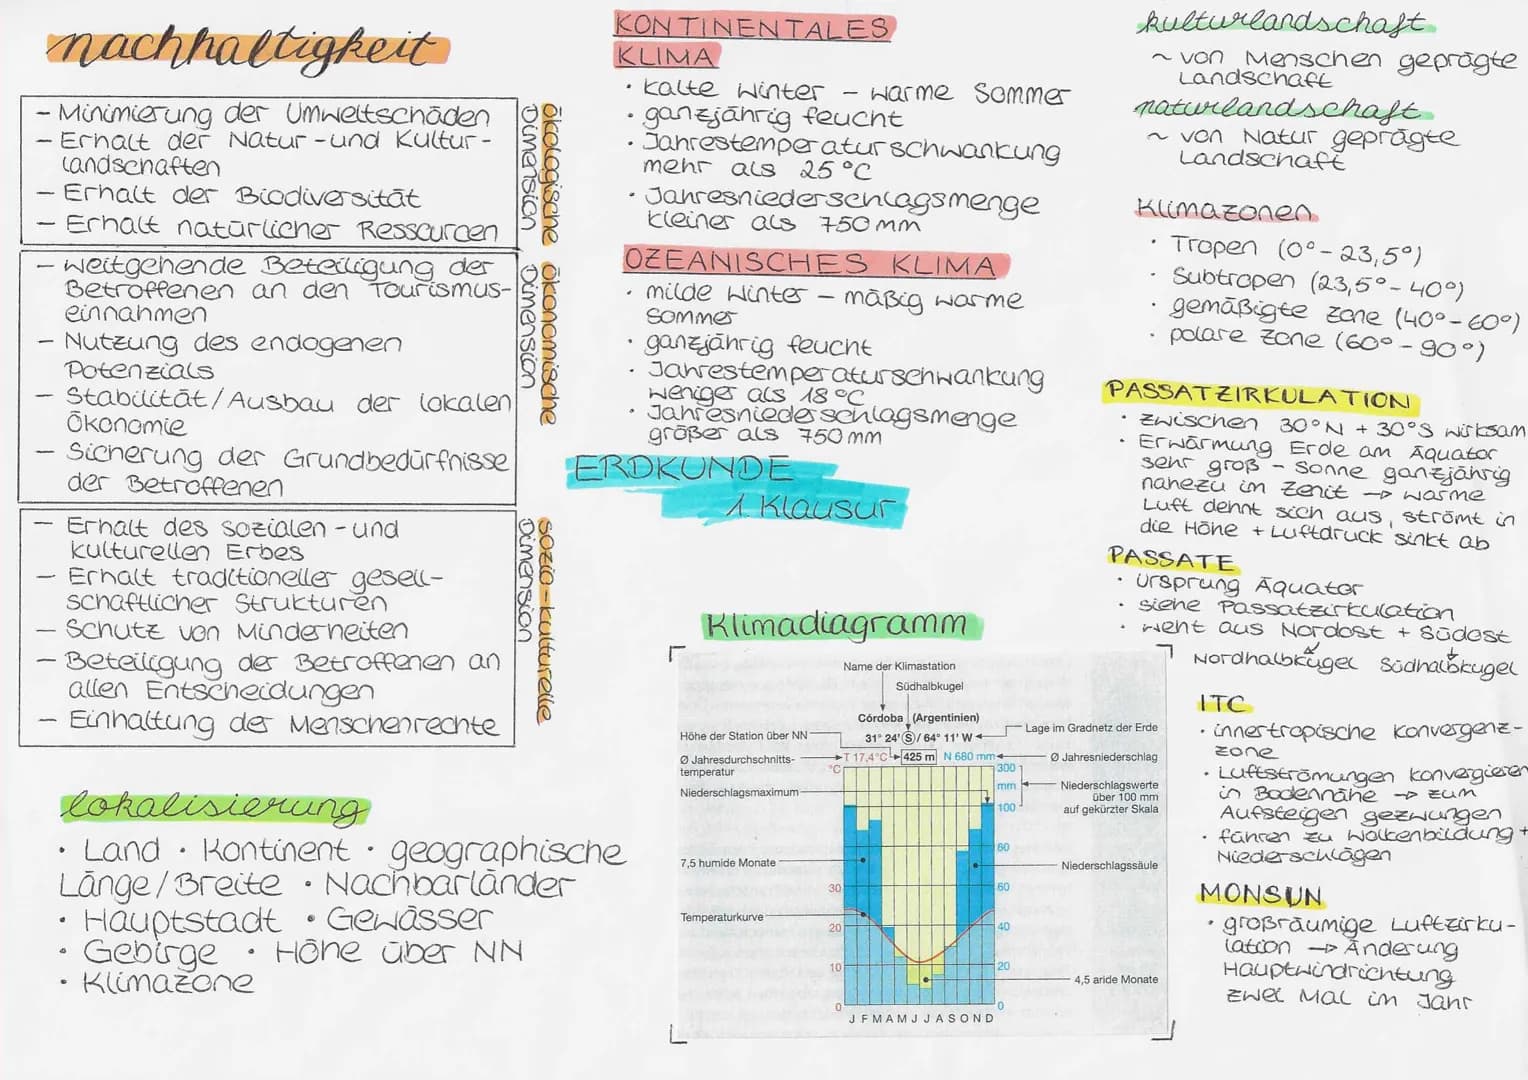 nachhaltigkeit
- Minimierung der Umweltschäden
- Erhalt der Natur-und Kultur-
landschaften
- Erhalt der Biodiversität
- Erhalt natürlicher Ressourcen
ökologische
Dimension
- weitgehende Beteiligung der
Betroffenen an den Tourismus-
einnahmen
- Nutzung des endogenen
Potenzials
- Stabilität/Ausbau der lokalen
Ökonomie
- Sicherung der Grundbedürfnisse
der Betroffenen
ökonomische
Dimension
- Erhalt des sozialen-und
kulturellen Erbes
- Erhalt traditioneller gesell-
schaftlicher Strukturen
- Schutz von Minderheiten
- Beteiligung der Betroffenen an
allen Entscheidungen
- Einhaltung der Menschenrechte
sozio-kulturelle
Dimension
lokalisierung
• Land • Kontinent • geographische
Länge/Breite • Nachbarländer
• Hauptstadt • Gewässer
• Gebirge • Höhe über NN
• Klimazone
KONTINENTALES
KLIMA
• kalte Winter - warme Sommer
• ganzjährig feucht
• Jahrestemperaturschwankung
mehr als 25°C
• Jahresniederschlagsmenge
kleiner als 750mm
OZEANISCHES KLIMA
• milde Winter - mäßig warme
Sommer
• ganzjährig feucht
• Jahrestemperaturschwankung
weniger als 18°C
• Jahresniederschlagsmenge
größer als 750mm
ERDKUNDE
1. Klausur
Klimadiagramm
Name der Klimastation
Südhalbkugel
Córdoba (Argentinien)
Höhe der Station über NN
31° 24' S / 64° 11' W
Lage im Gradnetz der Erde
Ø Jahresdurchschnitts-
temperatur
T 17,4°C 425 m N 680 mm
Ø Jahresniederschlag
°C
300
mm
Niederschlagsmaximum
Niederschlagswerte
über 100 mm
auf gekürzter Skala
100
80
7,5 humide Monate
Niederschlagssäule
30
60
Temperaturkurve
20
40
10
20
4,5 aride Monate
0
0
J F M A M J J A S O N D
kulturlandschaft
~ von Menschen geprägte
Landschaft
naturlandschaft
~ von Natur geprägte
Landschaft
Klimazonen
• Tropen (0°-23,5°)
• Subtropen (23,5°-40°)
• gemäßigte Zone (40°-60°)
• polare Zone (60°-90°)
PASSATZIRKULATION
• zwischen 30°N + 30°S wirksam
• Erwärmung Erde am Äquator
sehr groß - Sonne ganzjährig
nahezu im Zenit → warme
Luft dehnt sich aus, strömt in
die Höhe + Luftdruck sinkt ab
PASSATE
• Ursprung Äquator
• siehe Passatzirkulation
• weht aus Nordost + Südost
Nordhalbkugel Südhalbkugel
ITC
• innertropische Konvergenz-
zone
• Luftströmungen konvergieren
in Bodennähe → zum
Aufsteigen gezwungen
• führen zu Wolkenbildung +
Niederschlägen
MONSUN
• großräumige Luftzirku-
lation → Änderung
Hauptwindrichtung
zwei Mal im Jahr